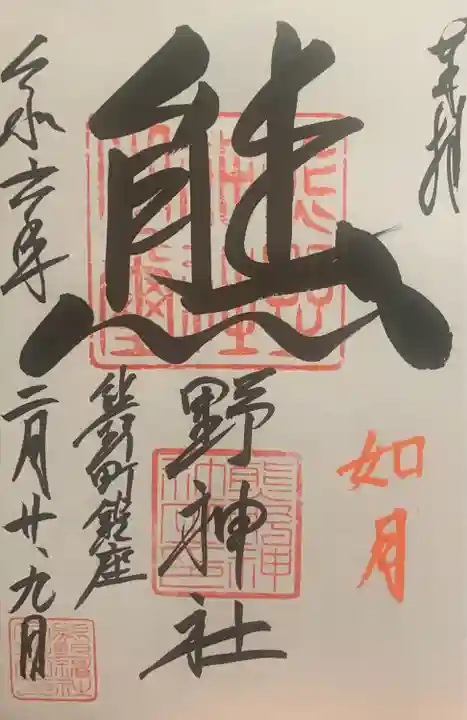 奉拝
如月
熊野神社
熊野町鎮座
令和六年二月廿九日